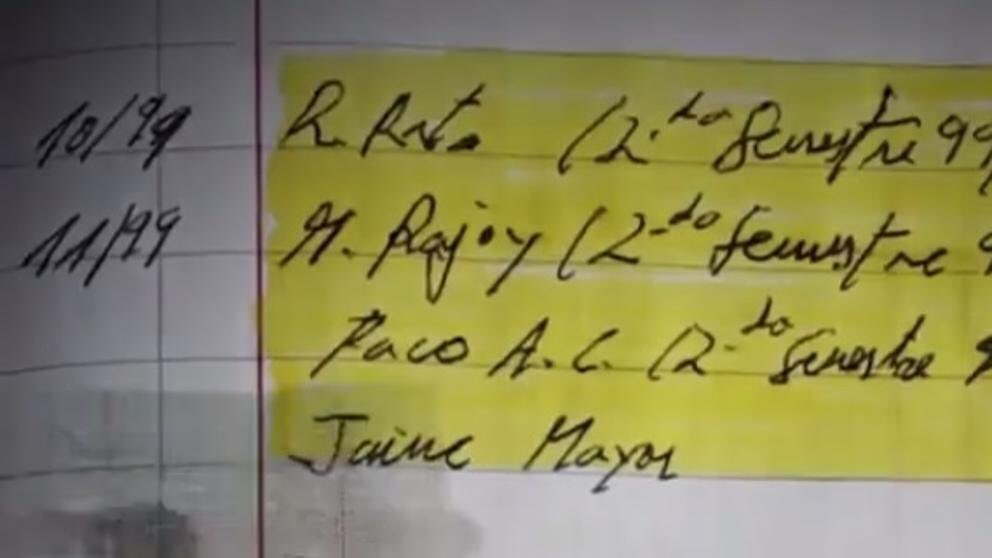 10/99 R. Rato (2.do Semestre 99
11/99 M. Rajoy (2.do Semestre 9
Paco A.C. (2.do Semestre 9
Jaime Mayor